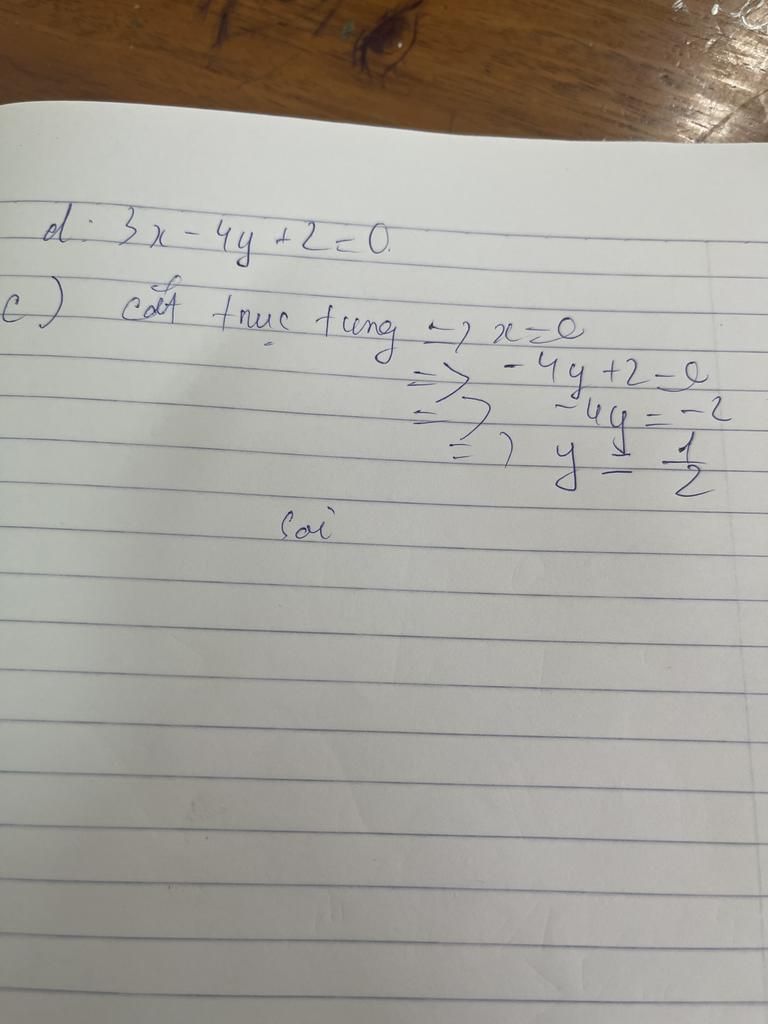 d: 3x - 4y + 2 = 0.
c) cắt trục tung => x = 0
=> -4y + 2 = 0
=> -4y = -2
=> y = 1/2
Sai